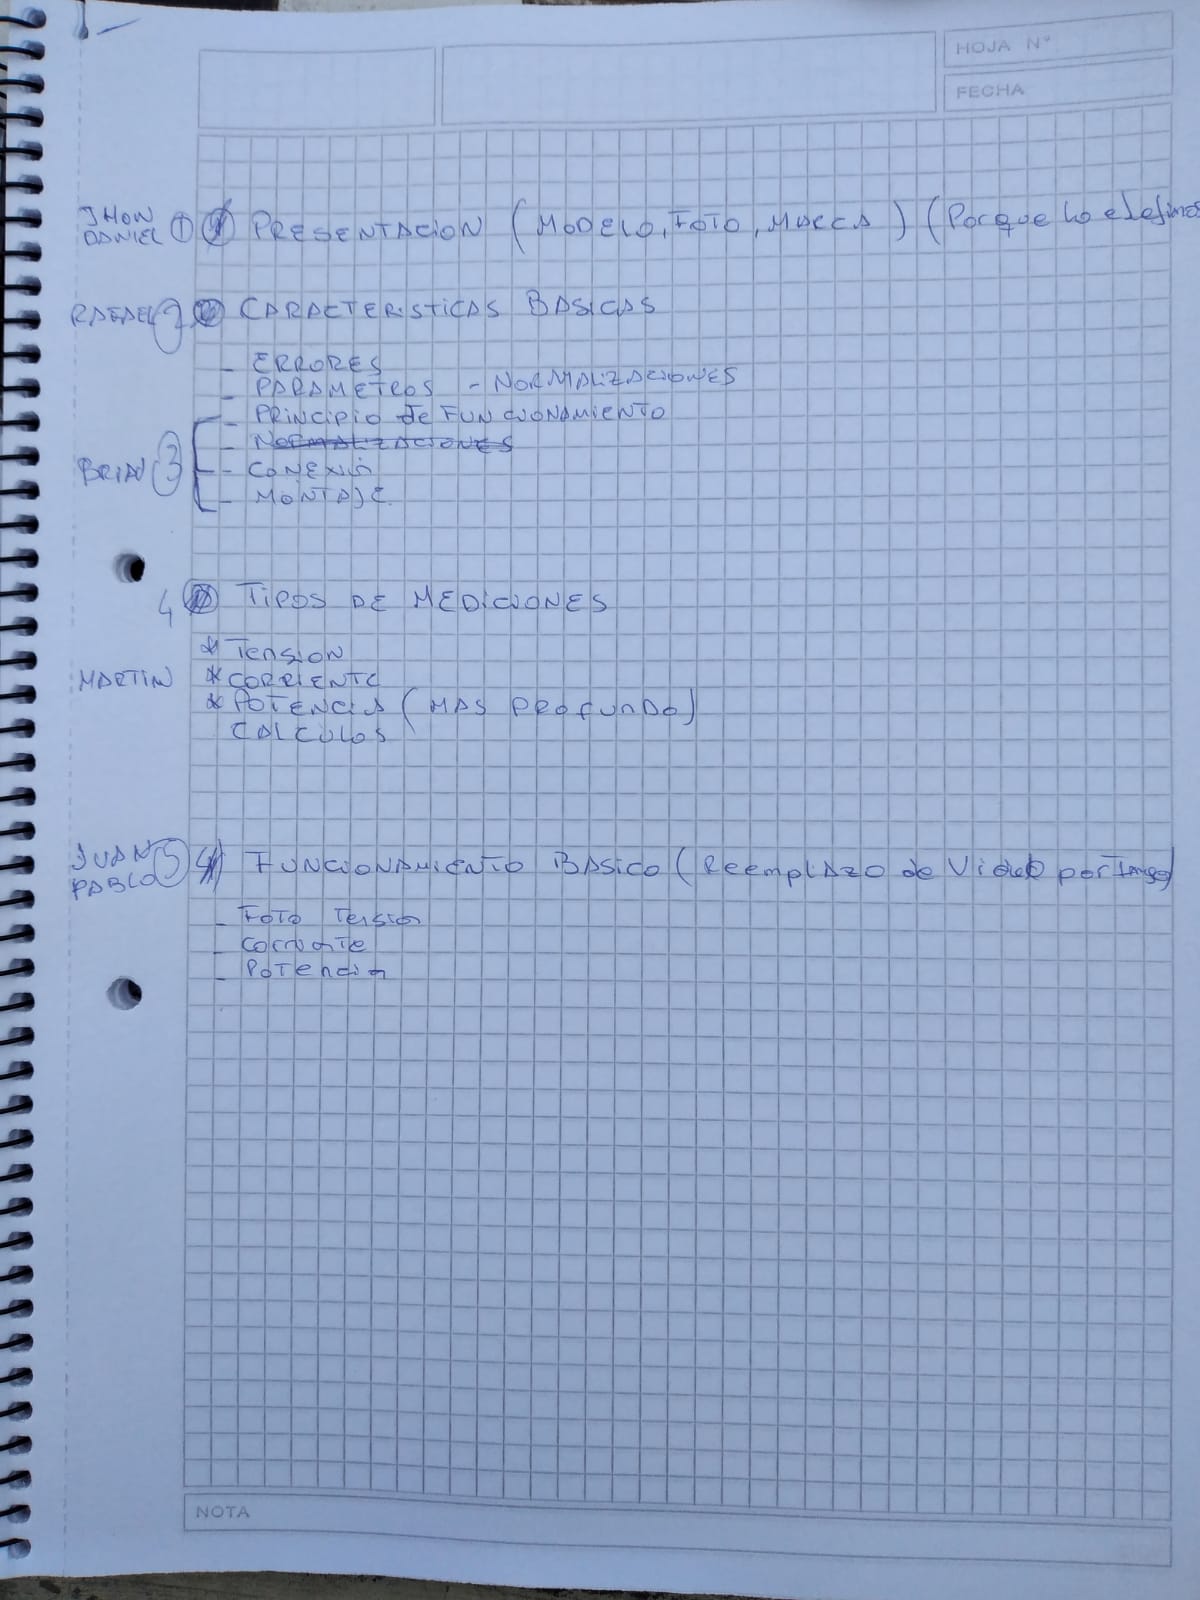 HOJA N°
FECHA
JHON
DANIEL ① PRESENTACION (MODELO, FOTO, MARCA) (Porque lo elegimos
RAFAEL 2 CARACTERISTICAS BASICAS
- ERRORES
- PARAMETROS - NORMALIZACIONES
- PRINCIPIO de FUNCIONAMIENTO
- NORMALIZACIONES
BRIAN 3 - CONEXION
- MONTAJE
4 TIPOS DE MEDICIONES
* TENSION
MARTIN * CORRIENTE
* POTENCIA (MAS PROFUNDO)
CALCULOS
JUAN
PABLO 5 FUNCIONAMIENTO BASICO (Reemplazo de Video por Imagen)
- FOTO Tension
- Corriente
- Potencia
NOTA